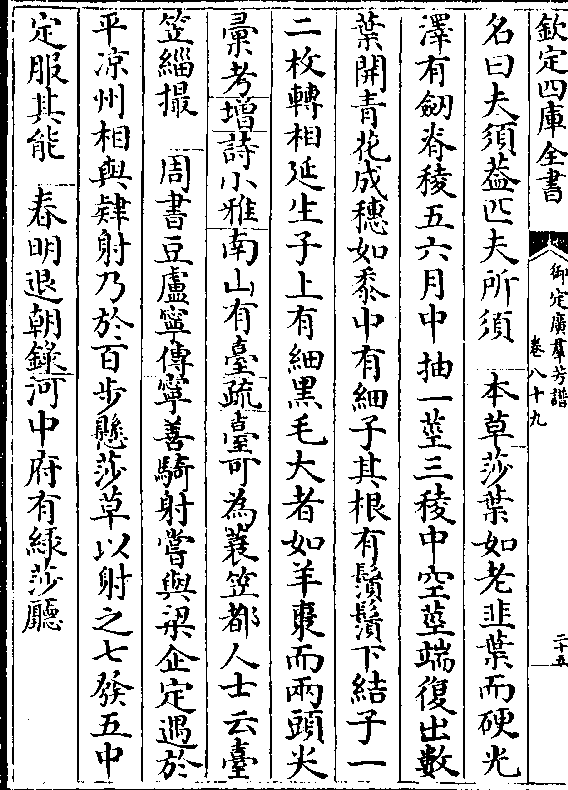 欽定四庫全書
御定廣羣芳譜
卷八十九
二十五
名曰夫須葢匹夫所須　本草莎葉如老韭葉而硬光
澤有劒脊稜五六月中抽一莖三稜中空莖端復出數
葉開青花成穗如黍中有細子其根有鬚鬚下結子一
二枚轉相延生子上有細黑毛大者如羊棗而兩頭尖
彙考增詩小雅南山有臺疏臺可為蓑笠都人士云臺
笠緇撮　周書豆盧寧傳寧善騎射嘗與梁企定遇於
平凉州相與肄射乃於百步懸莎草以射之七發五中
定服其能　春明退朝錄河中府有綠莎廳